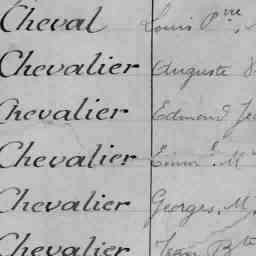 Cheval Louis Pre,
Chevalier Auguste
Chevalier Edmond
Chevalier
Chevalier Georges, M
Chevalier Jean Bte